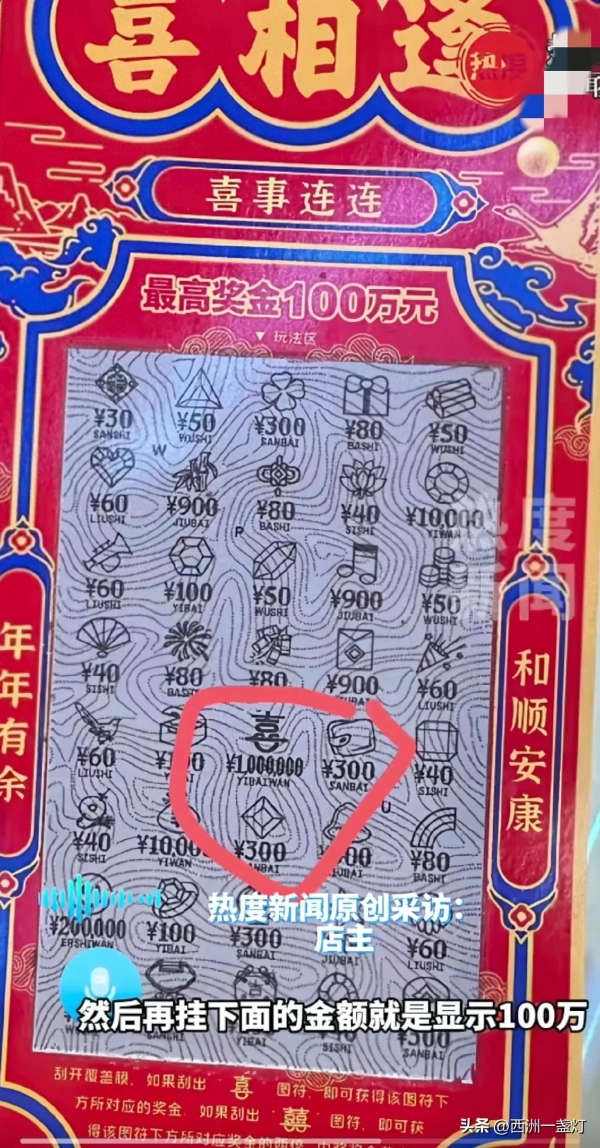 喜相逢
热度
喜事连连
最高奖金100万元
▼ 玩法区
¥30 ¥50 ¥300 ¥80 ¥50
SANSHI WUSHI SANBAI BASHI WUSHI
W
¥60 ¥900 ¥80 ¥40 ¥10,000
LIUSHI JIUBAI BASHI SISHI YIWAN
P
¥60 ¥100 ¥50 ¥900 ¥50
LIUSHI YIBAI WUSHI JIUBAI WUSHI
¥40 ¥80 ¥80 ¥900 ¥60
SISHI BASHI LIUSHI
喜
¥60 ¥1,000,000 ¥300 ¥40
LIUSHI YIBAIWAN SANBAI SISHI
U
¥40 ¥10,000 ¥300 ¥80
SISHI YIWAN BASHI
¥200,000 ¥100 ¥300 ¥60
ERSHIWAN YIBAI SANBAI LIUSHI
¥300
YIBAI SISHI SANBAI
年年有余
和顺安康
热度
新闻
热度新闻原创采访:
店主
然后再挂下面的金额就是显示100万
刮开覆盖膜，如果刮出 喜 图符，即可获得该图符下
方所对应的奖金，如果刮出 囍 图符，即可获
得该图符下方所对应奖金的两倍
头条 @西洲一盏灯